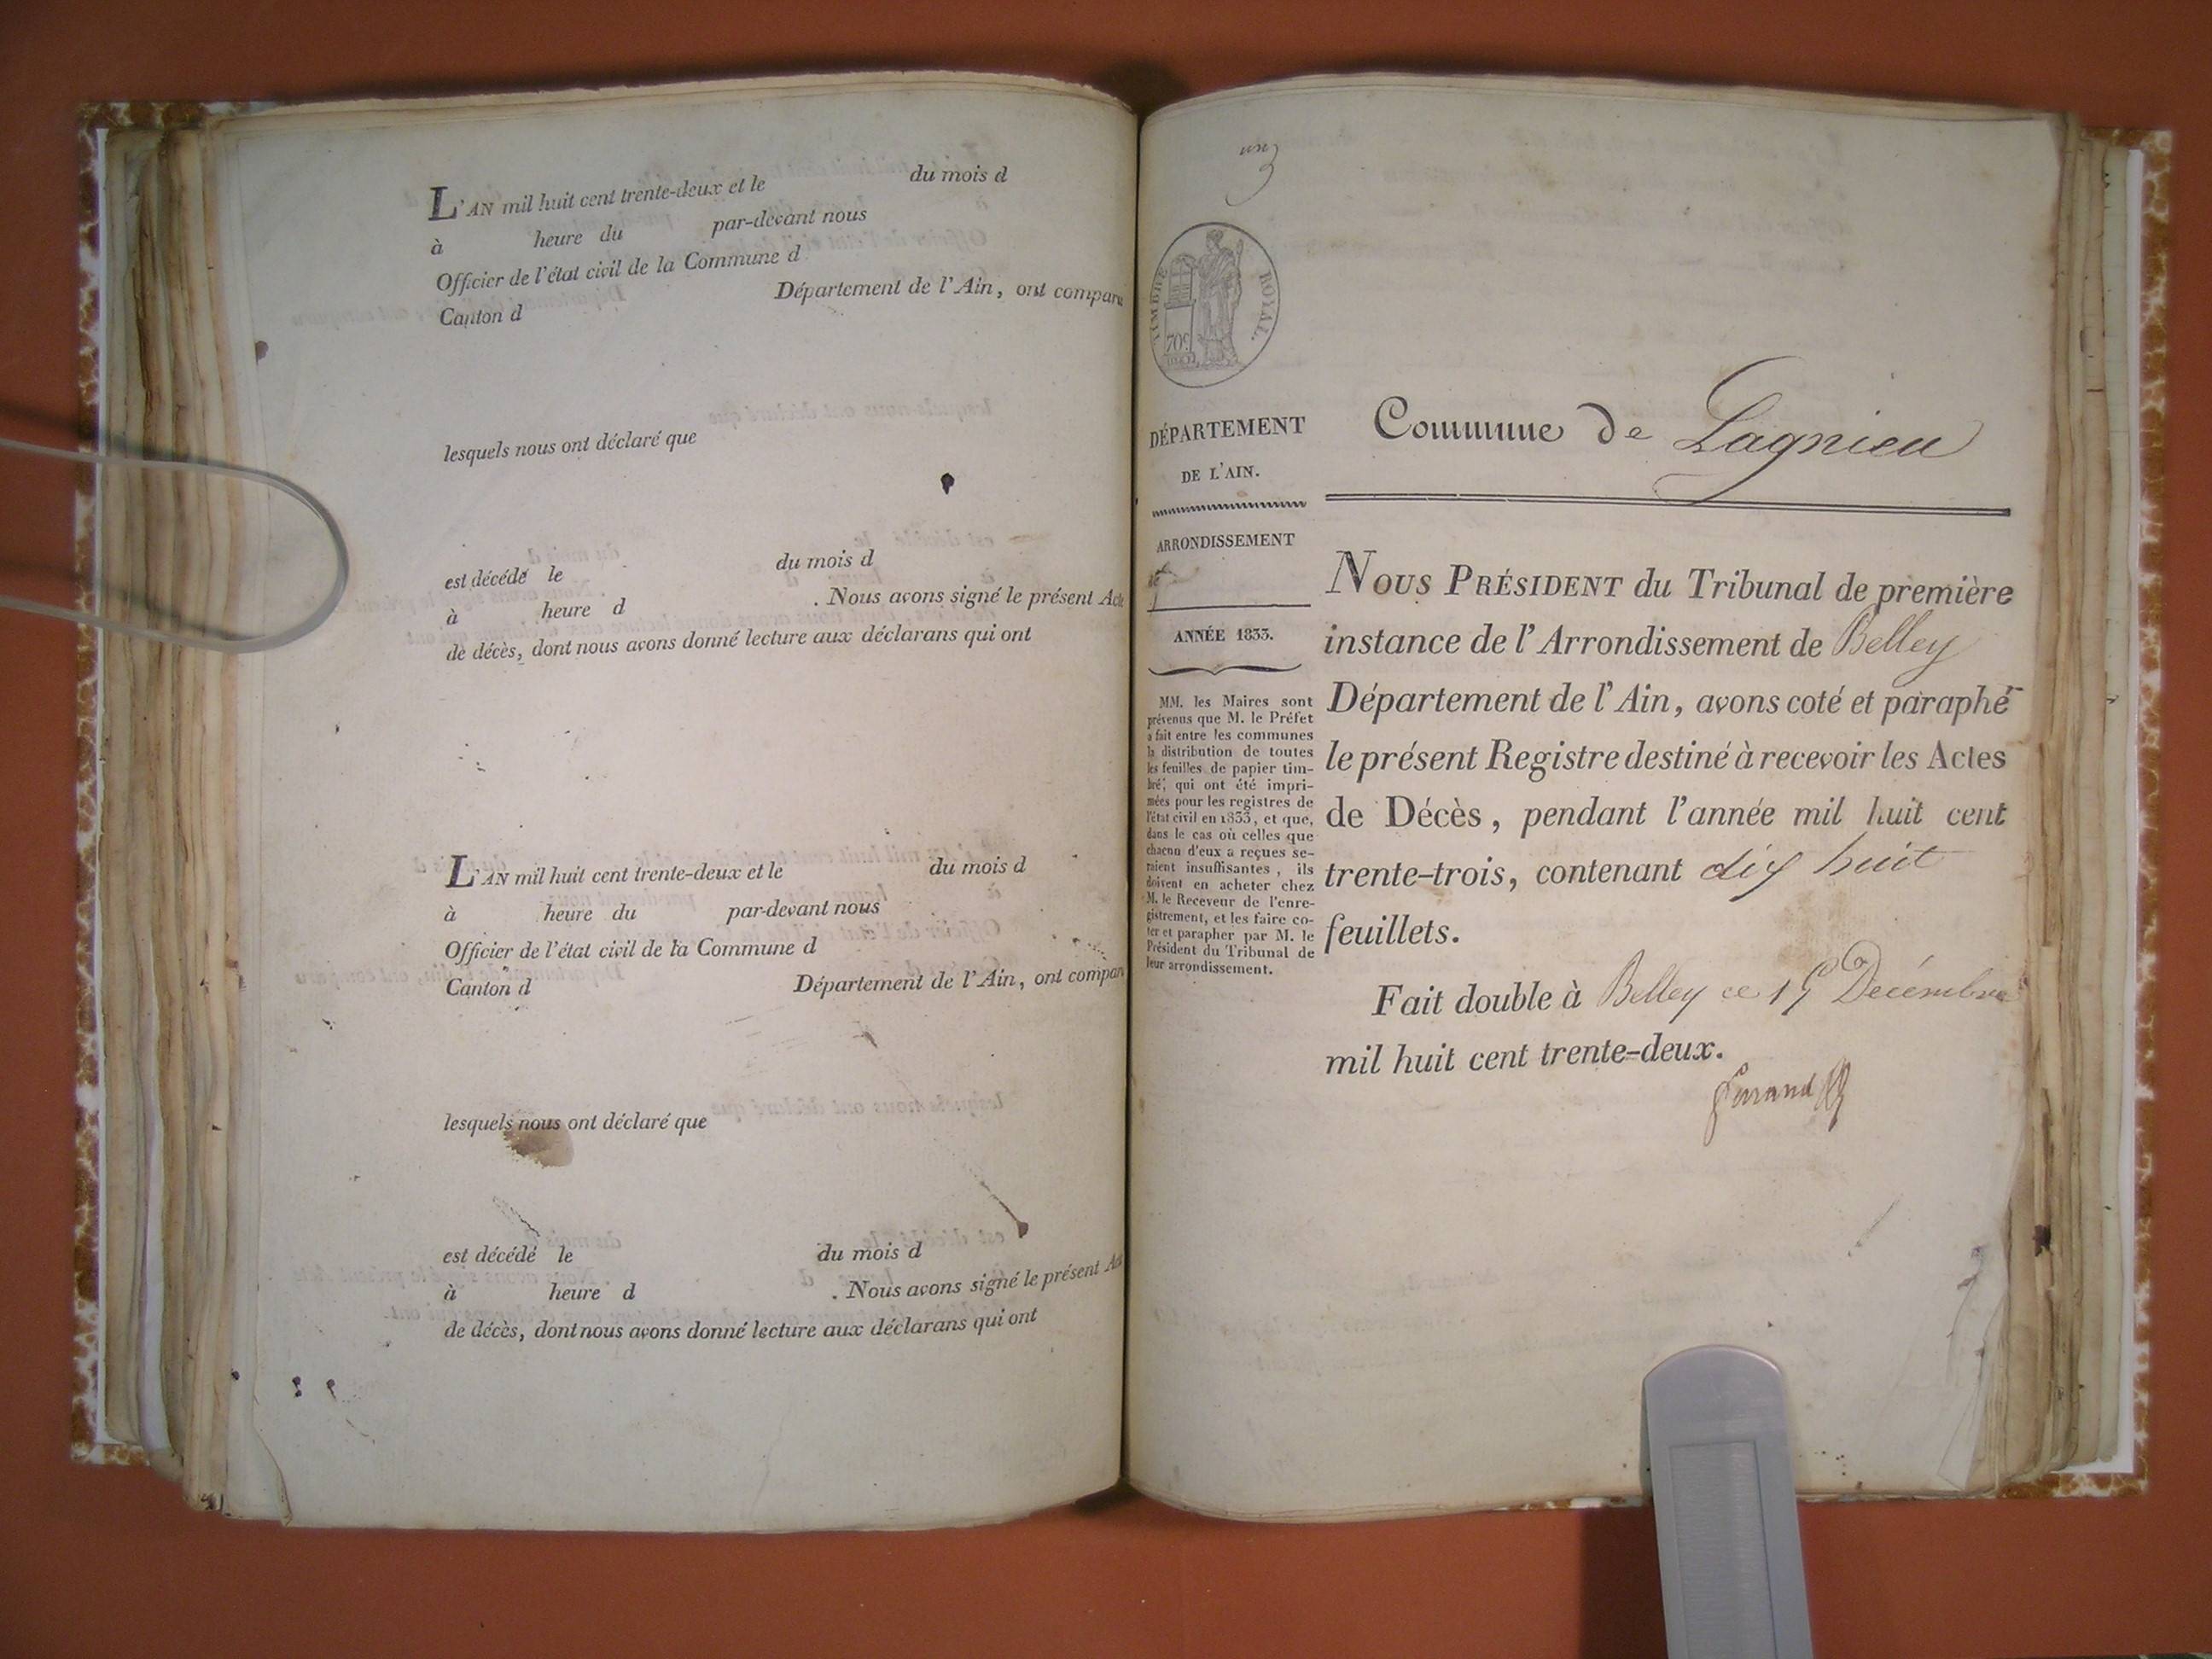 L'AN mil huit cent trente-deux et le du mois d
à heure du par-devant nous
Officier de l'état civil de la Commune d
Canton d Département de l'Ain, ont comparu
lesquels nous ont déclaré que
est décédé le du mois d
à heure d . Nous avons signé le présent Acte
de décès, dont nous avons donné lecture aux déclarans qui ont
L'AN mil huit cent trente-deux et le du mois d
à heure du par-devant nous
Officier de l'état civil de la Commune d
Canton d Département de l'Ain, ont compar
lesquels nous ont déclaré que
est décédé le du mois d
à heure d . Nous avons signé le présent Act
de décès, dont nous avons donné lecture aux déclarans qui ont
un
TIMBRE ROYAL.
70c
DÉPARTEMENT
DE L'AIN.
ARRONDISSEMENT
ANNÉE 1833.
MM. les Maires sont
prévenus que M. le Préfet
a fait entre les communes
la distribution de toutes
les feuilles de papier tim-
bré, qui ont été impri-
mées pour les registres de
l'état civil en 1833, et que,
dans le cas où celles que
chacun d'eux a reçues se-
raient insuffisantes, ils
doivent en acheter chez
M. le Receveur de l'enre-
gistrement, et les faire co-
ter et parapher par M. le
Président du Tribunal de
leur arrondissement.
Commune de Lagnieu
NOUS PRÉSIDENT du Tribunal de première
instance de l'Arrondissement de Belley
Département de l'Ain, avons coté et paraphé
le présent Registre destiné à recevoir les Actes
de Décès, pendant l'année mil huit cent
trente-trois, contenant dix huit
feuillets.
Fait double à Belley ce Décembre
mil huit cent trente-deux.